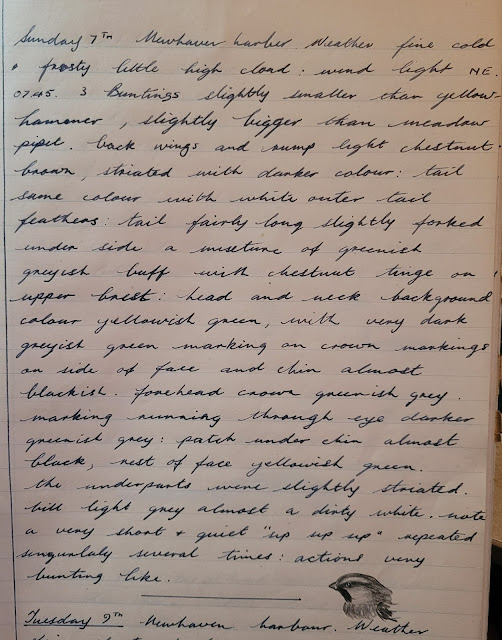 Sunday 7TH Newhaven harber Weather fine cold
+ frosty little high cloud : wind light NE
07.45. 3 Buntings slightly smaller than yellow
hammer, slightly bigger than meadow
pipit. back wings and rump light chestnut
brown, striated with darker colour: tail
same colour with white outer tail
feathers: tail fairly long slightly forked
under side a mixture of greenish
greyish buff with chestnut tinge on
upper brest: head and neck background
colour yellowish green, with very dark
greyish green marking on crown markings
on side of face and chin almost
blackish. forehead crown greenish grey.
marking running through eye darker
greenish grey: patch under chin almost
black, rest of face yellowish green.
the underparts were slightly striated.
bill light grey almost a dirty white. note
a very short + quiet "up up up" repeated
several times: actions very
bunting like.
Tuesday 9TH Newhaven harbour. Weather